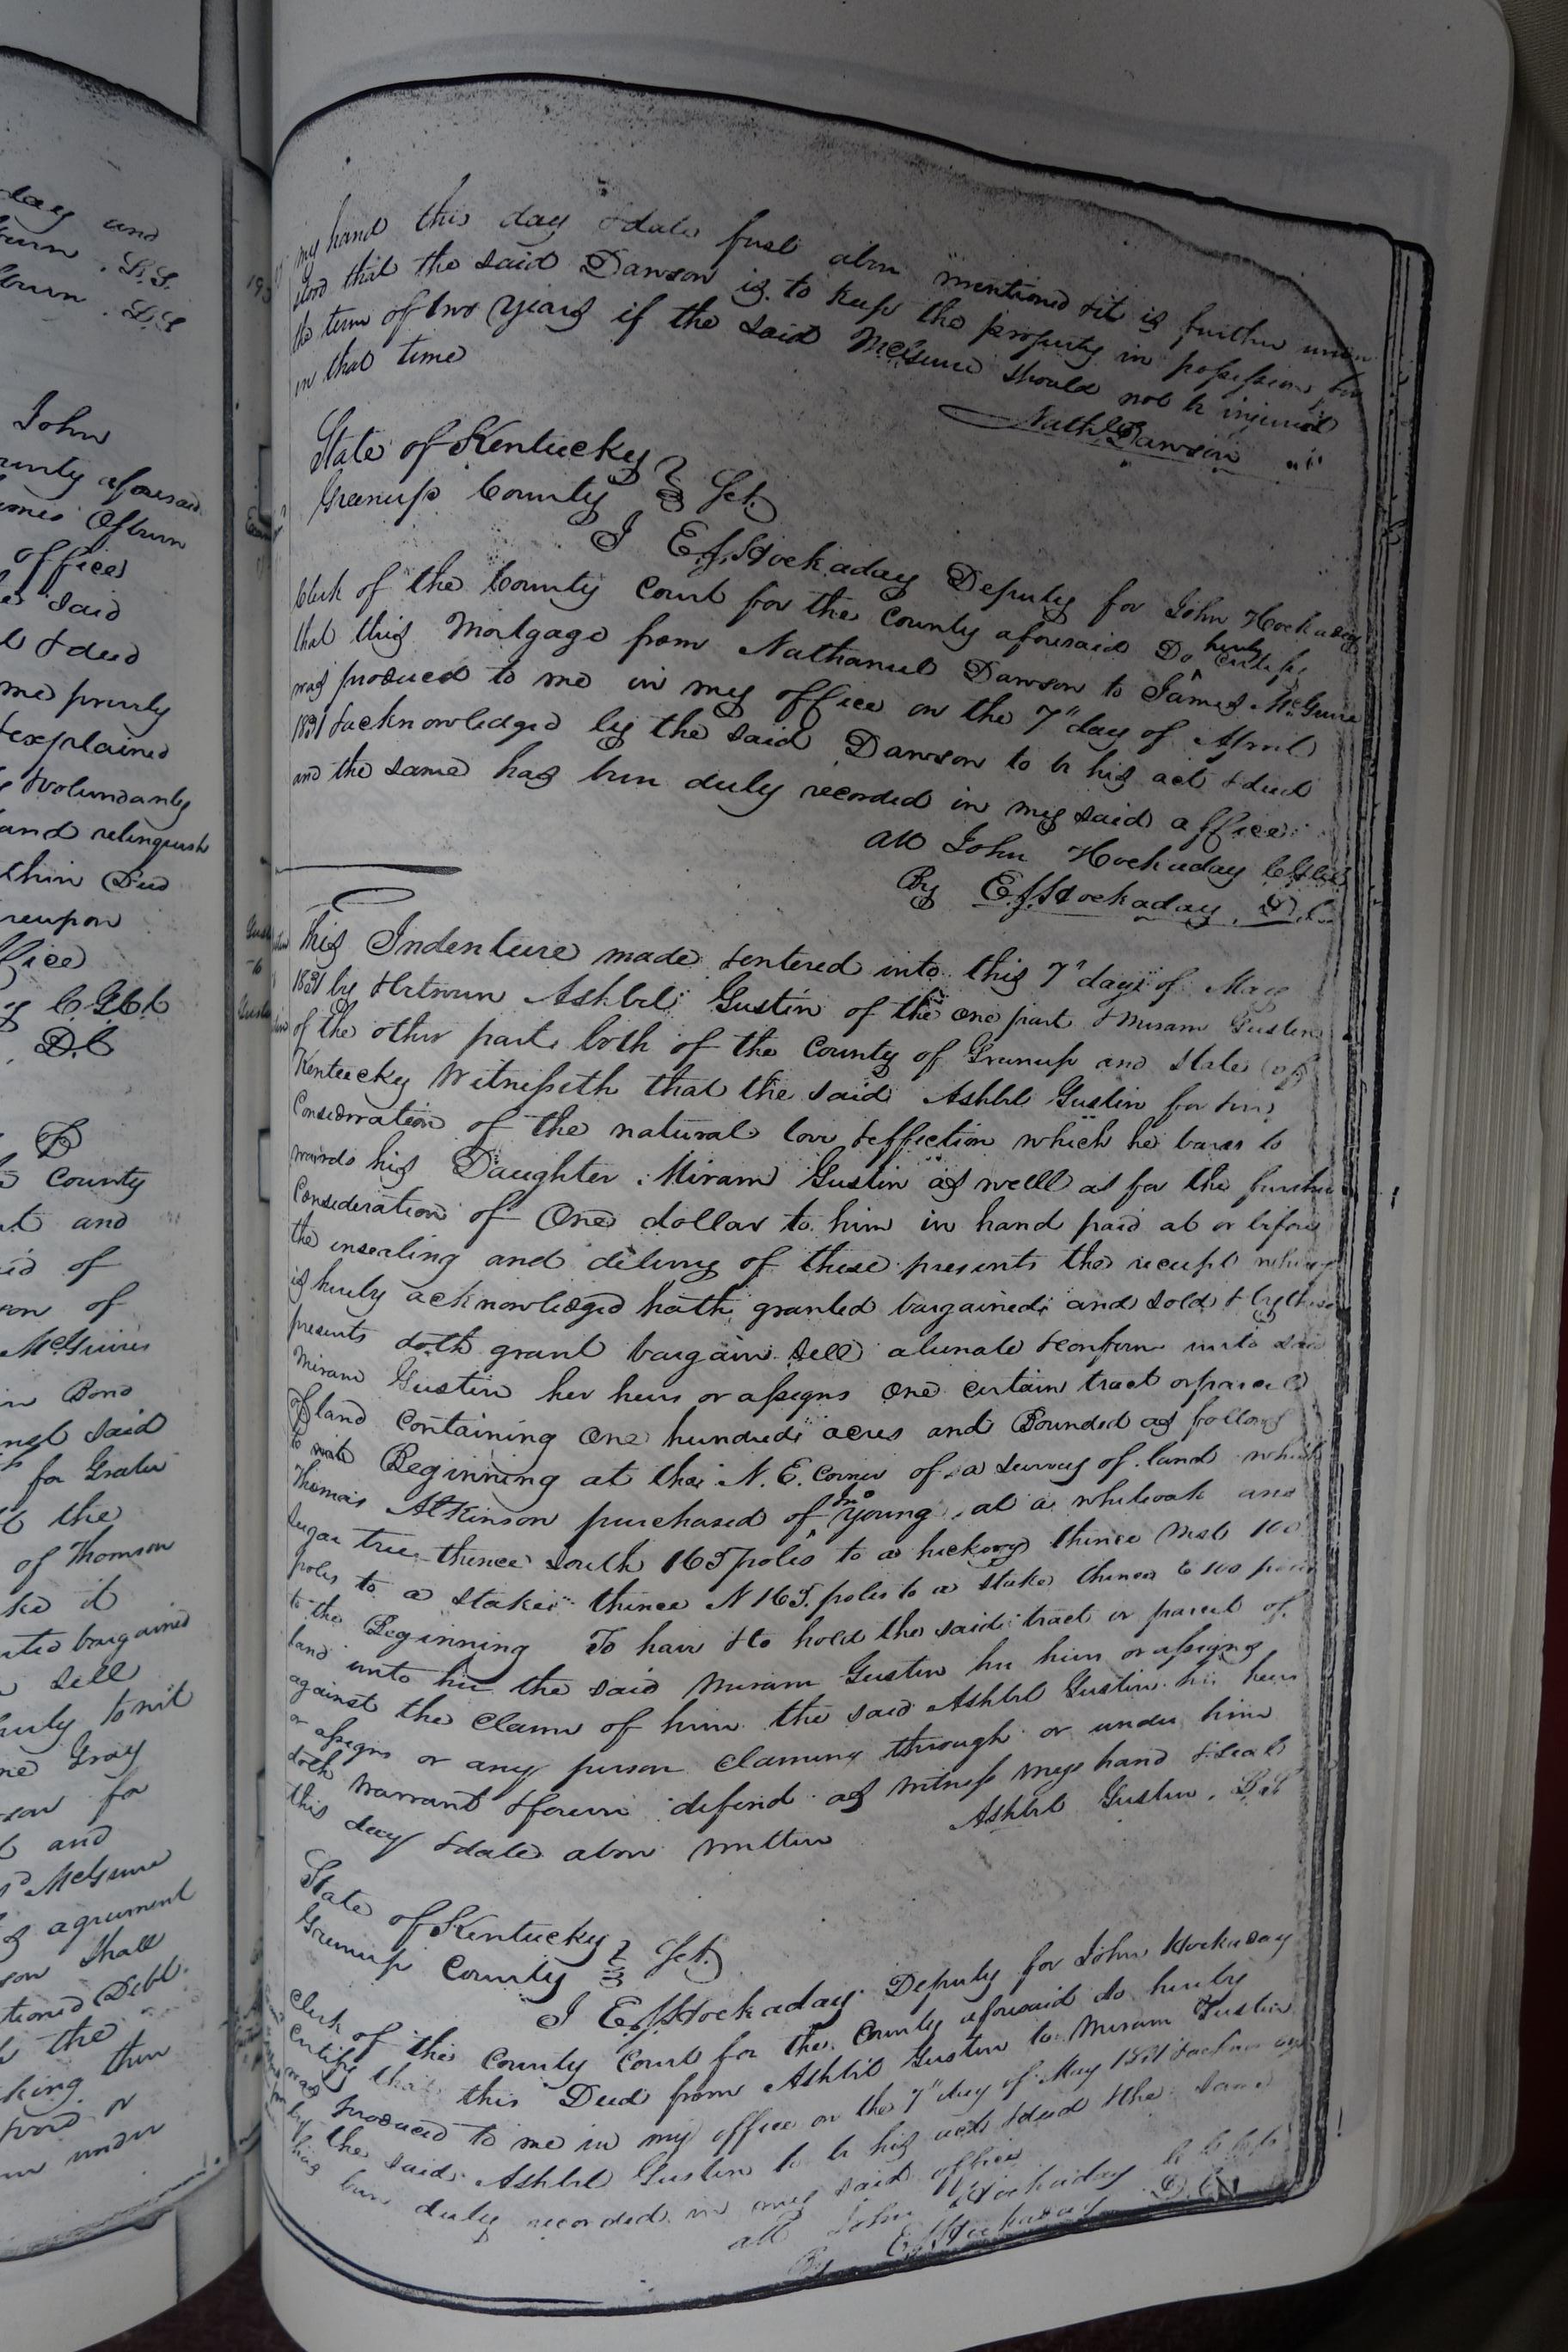 day and
L.S.
L.S
John
County aforesaid
James Ofburn
office
said
& deed
me privily
& explained
& voluntarily
and relinquish
within Deed
hereupon
office
C.G.C.C
D.C
County
and
of
son of
McGuires
in Bond
said
for Grater
the
of Thomson
it
bargained
sell
to wit
Gray
for
and
McGuire
agreement
shall
Debt.
the
then
or
under
my hand this day & date first above mentioned & it is further under
stood that the said Dawson is to keep the property in possession for
the term of two years if the said McGuire should not be injured
in that time
Nathl Dawson
State of Kentucky
Greenup County } Sct.
I E.F. Hockaday Deputy for John Hockaday
Clerk of the County Court for the County aforesaid Do hereby certify
that this Mortgage from Nathaniel Dawson to James McGuire
was produced to me in my office on the 7" day of April
1831 & acknowledged by the said Dawson to be his act & deed
and the same has been duly recorded in my said office
att John Hockaday
By E.F. Hockaday D.C.
This Indenture made & entered into this 7" day of May
1831 by & between Ashbel Gustin of the one part & Miram Gustin
of the other part both of the County of Greenup and State of
Kentucky Witnesseth that the said Ashbel Gustin for & in
Consideration of the natural love & effection which he bares to
wards his Daughter Miram Gustin as well as for the further
Consideration of One dollar to him in hand paid at or before
the insealing and delivery of these presents the receipt whereof
is hereby acknowledged hath granted bargained and sold & by these
presents doth grant bargain sell alienate & confirm unto said
Miram Gustin her heirs or assigns one certain tract or parcel
of land containing one hundred acres and Bounded as follows
to wit Beginning at the N.E. corner of a survey of land which
Thomas Atkinson purchased of Jno Young at a whiteoak and
Sugar tree thence South 165 poles to a hickory thence West 100
poles to a stake thence N 165 poles to a stake thence E 100 poles
to the Beginning To have & to hold the said tract or parcel of
land unto her the said Miram Gustin her heirs or assigns
against the claim of him the said Ashbel Gustin his heirs
or assigns or any person claiming through or under him
doth warrant & forever defend as witness my hand & seal
this day & date above written Ashbel Gustin L.S
State of Kentucky
Greenup County } Sct.
I E.F. Hockaday Deputy for John Hockaday
Clerk of the County Court for the County aforesaid do hereby
certify that this Deed from Ashbel Gustin to Miram Gustin
was produced to me in my office on the 7" day of May 1831 & acknowledged
by the said Ashbel Gustin to be his act & deed & the same
has been duly recorded in my said office
att John Hockaday C.G.C.C.
By E.F. Hockaday D.C.